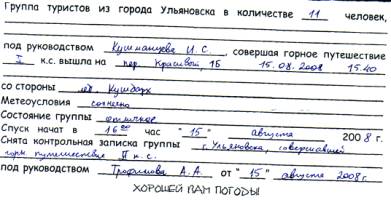 Группа туристов из города Ульяновска в количестве 11 человек,
под руководством Кушманцева И.С., совершая горное путешествие
I к.с. вышла на пер. Красивый, 1Б 15.08.2008 15.40
со стороны лед. Кушдарх
Метеоусловия солнечно
Состояние группы отличное
Спуск начат в 16 00 час "15" августа 2008 г.
Снята контрольная записка группы г. Ульяновска, совершавшей
горн. путешествие II к.с.
под руководством Трофимова А.А. от "15" августа 2008г.
ХОРОШЕЙ ВАМ ПОГОДЫ!